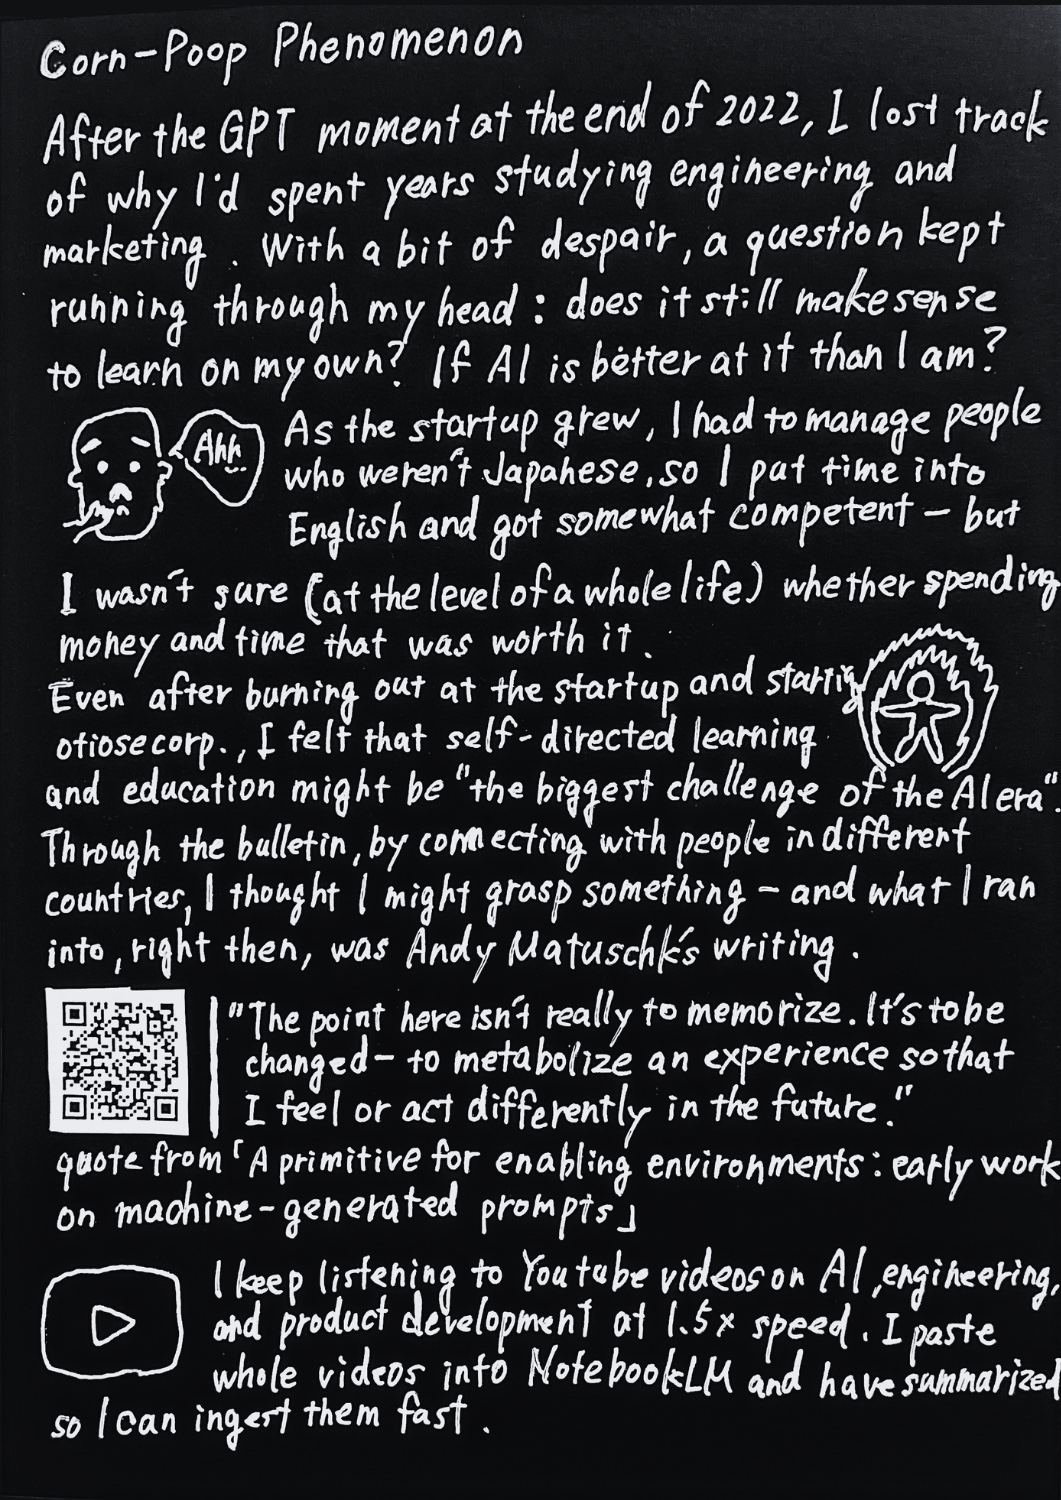 Corn-Poop Phenomenon
After the GPT moment at the end of 2022, I lost track
of why I'd spent years studying engineering and
marketing. With a bit of despair, a question kept
running through my head: does it still make sense
to learn on my own? If AI is better at it than I am?
Ahh
As the startup grew, I had to manage people
who weren't Japanese, so I put time into
English and got somewhat competent — but
I wasn't sure (at the level of a whole life) whether spending
money and time that was worth it.
Even after burning out at the startup and starting
otiose corp., I felt that self-directed learning
and education might be "the biggest challenge of the AI era".
Through the bulletin, by connecting with people in different
countries, I thought I might grasp something — and what I ran
into, right then, was Andy Matuschk's writing.
"The point here isn't really to memorize. It's to be
changed — to metabolize an experience so that
I feel or act differently in the future."
quote from「A primitive for enabling environments: early work
on machine-generated prompts」
I keep listening to Youtube videos on AI, engineering,
and product development at 1.5x speed. I paste
whole videos into NotebookLM and have summarized
so I can ingest them fast.